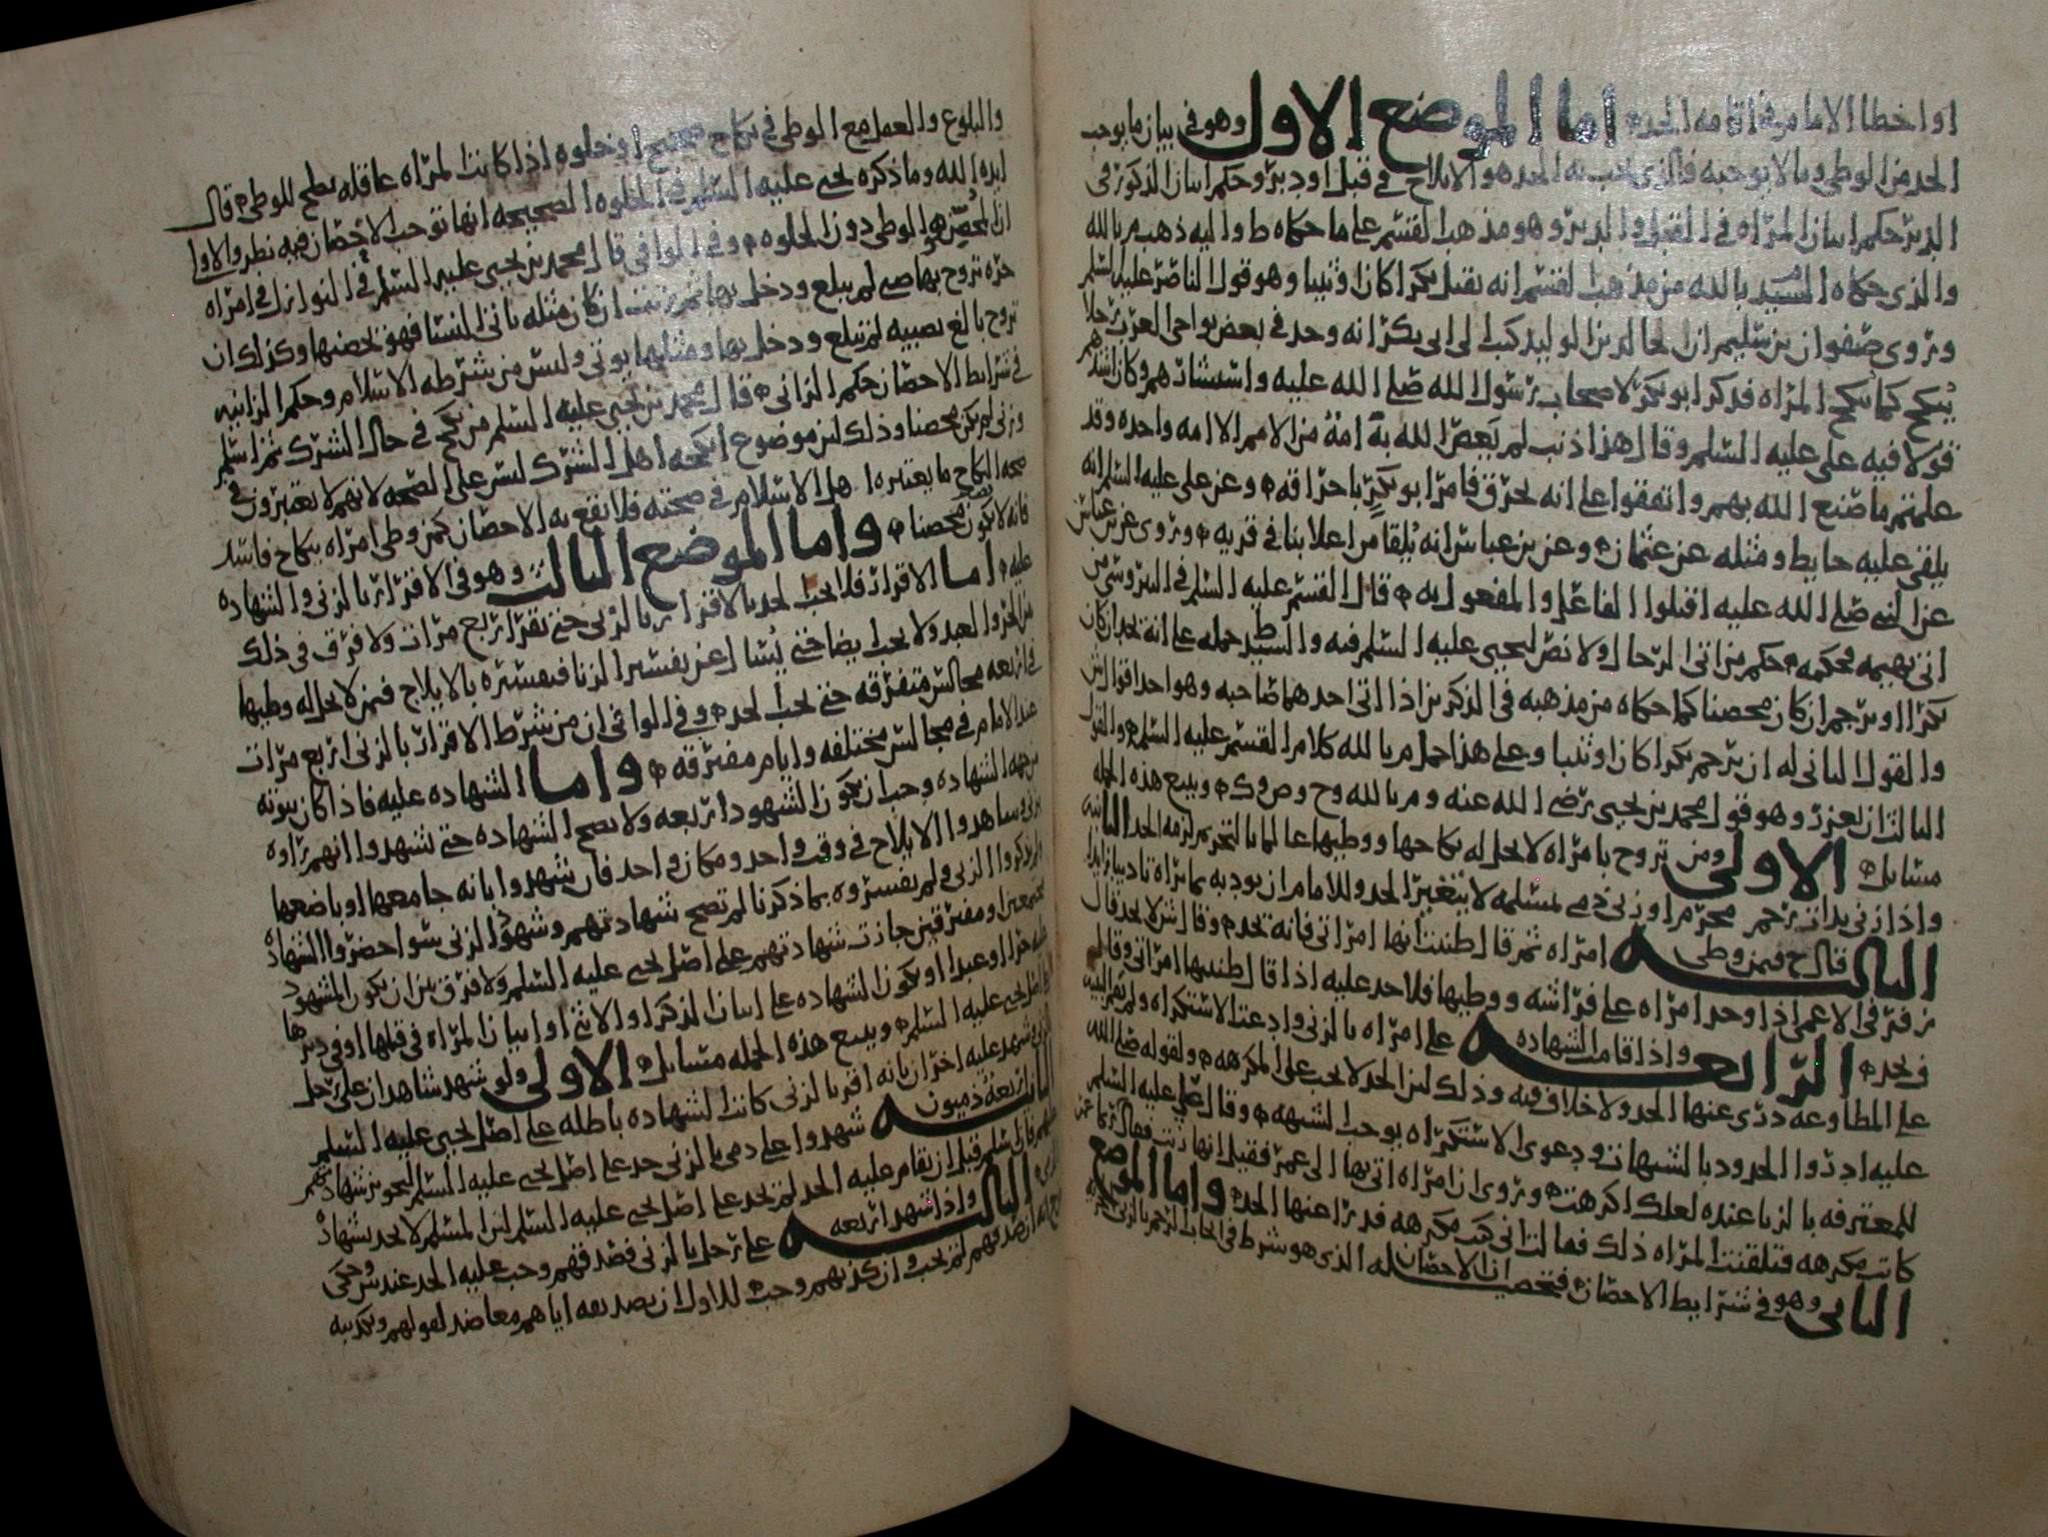 او اخطا الامام في اقامه الحد اما الموضع الاول وهو في بيان ما يوجب
الحد من الوطي وما لا يوجبه فالذي يجب به الحد هو الايلاج في قبل او دبر وحكم اتيان الذكور في
الدبر حكم اتيان المراه في القبل والدبر وهو مذهب القسم على ما حكاه ط واليه ذهب م بالله
والذي حكاه السيد بالله من مذهب القسم انه يقتل بكرا كان او ثيبا وهو قول الناصر عليه السلم
وروى صفوان بن سليم ان خالد بن الوليد كتب الى ابي بكر انه وجد في بعض نواحي العرب رجلا
ينكح كما تنكح المراه فذكر ابو بكر لاصحاب رسول الله صلى الله عليه واستشارهم وكان اشدهم
قولا فيه علي عليه السلم وقال هذا ذنب لم يعص الله به امة من الامم الا امه واحده وقد
علمتم ما صنع الله بهم واتفقوا على انه يحرق فامر ابو بكر باحراقه وعن علي عليه السلم انه
يلقى عليه حايط ومثله عن عثمان وعن بن عباس انه يلقا من اعلا بنا في قريه وروى عن بن عباس
عن النبي صلى الله عليه اقتلوا الفاعل والمفعول به قال القسم عليه السلم في النيروسي من
اتى بهيمه فحكمه حكم من اتى الرجال ولا نص ليحيى عليه السلم فيه والسيد ط حمله على انه يحد ان كان
بكرا او يرجم ان كان محصنا كما حكاه من مذهبه في الذكرين اذا اتى احدهما صاحبه وهو احد اقوال ش
والقول الثاني له ان يرجم بكرا كان او ثيبا وعلى هذا حمل م بالله كلام القسم عليه السلم والقول
الثالث ان يعزر وهو قول محمد بن يحيى رضي الله عنه وم بالله وح وص وك ويتبع هذه الجمله
مسايل الاولى ومن تزوج بامراه لا يحل له نكاحها ووطيها عالما بالتحريم لزمه الحد الثانيه
واذا زنى بذات رحم محرم او زنى ذمي بمسلمه لا يتغير الحد وللامام ان يودبه بما يراه تاديبا زايدا
الثالثه قال ح فيمن وطي امراه ثم قال ظننت انها امراتي فانه يحد وقال ش لا يحد قال
زفر في الاعمى اذا وجد امراه على فراشه ووطيها فلا حد عليه اذا قال ظننتها امراتي وقال م
ف يحد الرابعه واذا قامت الشهاده على امراه بالزنى وادعت الاستكراه ولم تقم البينه
على المطاوعه دري عنها الحد ولا خلاف فيه وذلك لان الحد لا يجب على المكرهه ولقوله صلى الله
عليه ادروا الحدود بالشبهات ودعوى الاستكراه يوجب الشبهه وقال علي عليه السلم
للمعترفه بالزنا عنده لعلك اكرهت وروى ان امراه اتي بها الى عمر فقيل انها زنت فقال
كانت مكرهه فتلقنت المراه ذلك فقالت اني كنت مكرهه فدرا عنها الحد واما الموضع
الثاني وهو في شرايط الاحصان فتحصيله ان الاحصان الذي هو شرط في ايجاب الرجم بالزنى
والبلوغ والعقل مع الوطي في نكاح صحيح او خلوه اذا كانت المراه عاقله تصلح للوطي قال
ايده الله وما ذكره يحيى عليه السلم في الخلوه الصحيحه انها توجب الاحصان فيه نظر والاولى
ان المحصن هو الوطي دون الخلوه وفي الوافي قال محمد بن يحيى عليه السلم في النوازل في امراه
حره تزوج بها صبي لم يبلغ ودخل بها ثم زنت ان كان مثله ياتي النسا فهو يحصنها وكذلك ان
تزوج بالغ بصبيه لم تبلغ ودخل بها ومثلها يوتى وليس من شرطه الاسلام وحكم الزانيه
في شرايط الاحصان حكم الزاني قال محمد بن يحيى عليه السلم من نكح في حال الشرك ثم اسلم
وزنى لم يكن محصنا وذلك لان موضوع انكحه اهل الشرك ليس على الصحه لانهم لا يعتبرون في
صحه النكاح ما يعتبره اهل الاسلام في صحته فلا يقع به الاحصان كمن وطي امراه بنكاح فاسد
فانه لا يكون محصنا واما الموضع الثالث وهو في الاقرار بالزنى والشهاده
عليه اما الاقرار فلا يجب الحد بالاقرار بالزنى حتى يقر اربع مرات ولا فرق في ذلك
بين الحر والعبد ولا يجب ايضا حتى يسال عن تفسير الزنا فيفسره بالايلاج فيمن لا يحل له وطيها
في اربعه مجالس متفرقه حتى يجب الحد وفي الوافي ان من شرط الاقرار بالزنى اربع مرات
عند الامام في مجالس مختلفه وايام مفترقه واما الشهاده عليه فاذا كان ثبوته
من جهه الشهاده وجب ان يكون الشهود اربعه ولا تصح الشهاده حتى تشهدوا انهم راوه
يزني وشاهدوا الايلاج في وقت واحد ومكان واحد فان شهدوا بانه جامعها او باضعها
ولم يذكروا الزنى ولم يفسروه بما ذكرنا لم تصح شهادتهم وشهود الزنى سوا حضروا الشهاده
مجتمعين او مفترقين جازت شهادتهم على اصل يحيى عليه السلم ولا فرق بين ان يكون المشهود
عليه حرا او عبدا او تكون الشهاده على اتيان الذكر او الانثى او اتيان المراه في قبلها او في دبرها
على اصل يحيى عليه السلم ويتبع هذه الجمله مسايل الاولى ولو شهد شاهدان على رجل
بالزنى وشهد عليه اخران بانه اقر بالزنى كانت الشهاده باطله على اصل يحيى عليه السلم
الثانيه اربعه ذميون شهدوا على ذمي بالزنى حد على اصل يحيى عليه السلم لتجويز شهادتهم
فان اسلم قبل ان يقام عليه الحد لم يحد على اصل يحيى عليه السلم لان المسلم لا يحد بشهاده
الثالثه واذا شهد اربعه على رجل بالزنى فصدقهم وجب عليه الحد عند ش وحكي
انه ان صدقهم لم يجب وان كذبهم وجب للاول ان تصديقه اياهم معاضد لقولهم وتكذيبه